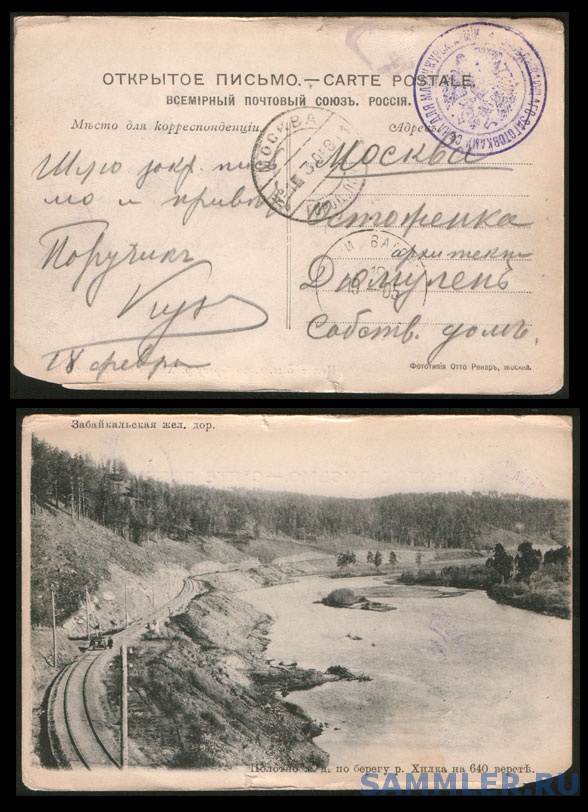 ОТКРЫТОЕ ПИСЬМО.—CARTE POSTALE.
ВСЕМІРНЫЙ ПОЧТОВЫЙ СОЮЗЪ. РОССІЯ.
Мѣсто для корреспонденціи
Адресъ
МОСКВА
Шлю закр. пись
мо и привѣтъ
Поручикъ
18 февр
Москва
Остоженка
архитект
Дюмуленъ
Собств. домъ.
Фототипія Отто Ренаръ, москва.
Забайкальская жел. дор.
Полотно ж. д. по берегу р. Хилка на 640 верстѣ.
SAMMLER.RU